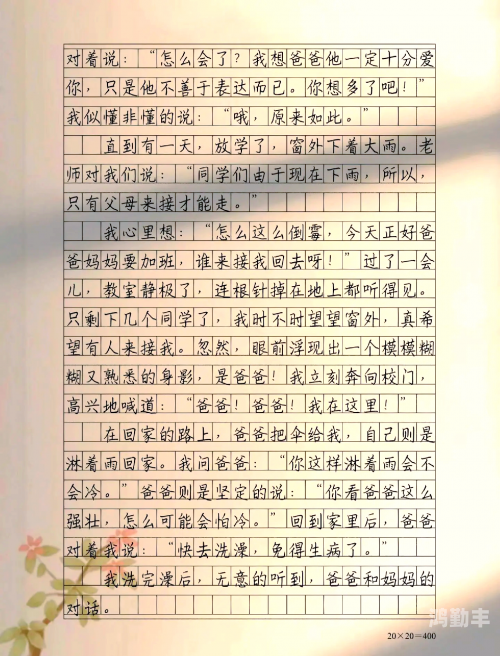 对着说：“怎么会了？我想爸爸他一定十分爱
你，只是他不善于表达而已。你想多了吧！”
我似懂非懂的说：“哦，原来如此。”
直到有一天，放学了，窗外下着大雨。老
师对我们说：“同学们由于现在下雨，所以，
只有父母来接才能走。”
我心里想：“怎么这么倒霉，今天正好爸
爸妈妈要加班，谁来接我回去呀！”过了一会
儿，教室静极了，连根针掉在地上都听得见。
只剩下几个同学了，我时不时望望窗外，真希
望有人来接我。忽然，眼前浮现出一个模模糊
糊又熟悉的身影，是爸爸！我立刻奔向校门，
高兴地喊道：“爸爸！爸爸！我在这里！”
在回家的路上，爸爸把伞给我，自己则是
淋着雨回家。我问爸爸：“你这样淋着雨会不
会冷。”爸爸则是坚定的说：“你看爸爸这么
强壮，怎么可能会怕冷。”回到家里后，爸爸
对着我说：“快去洗澡，免得生病了。”
我洗完澡后，无意的听到，爸爸和妈妈的
对话。
鸿勤丰
20×20=400